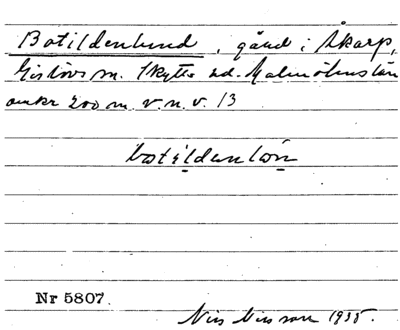 Botildenlund, gård i Åkarp,
Gislövs sn. Skytts hd. Malmöhus län
omkr 200 m. v. n. v. 13
botildenlön
Nr 5807.
Nils Nilsson 1935.